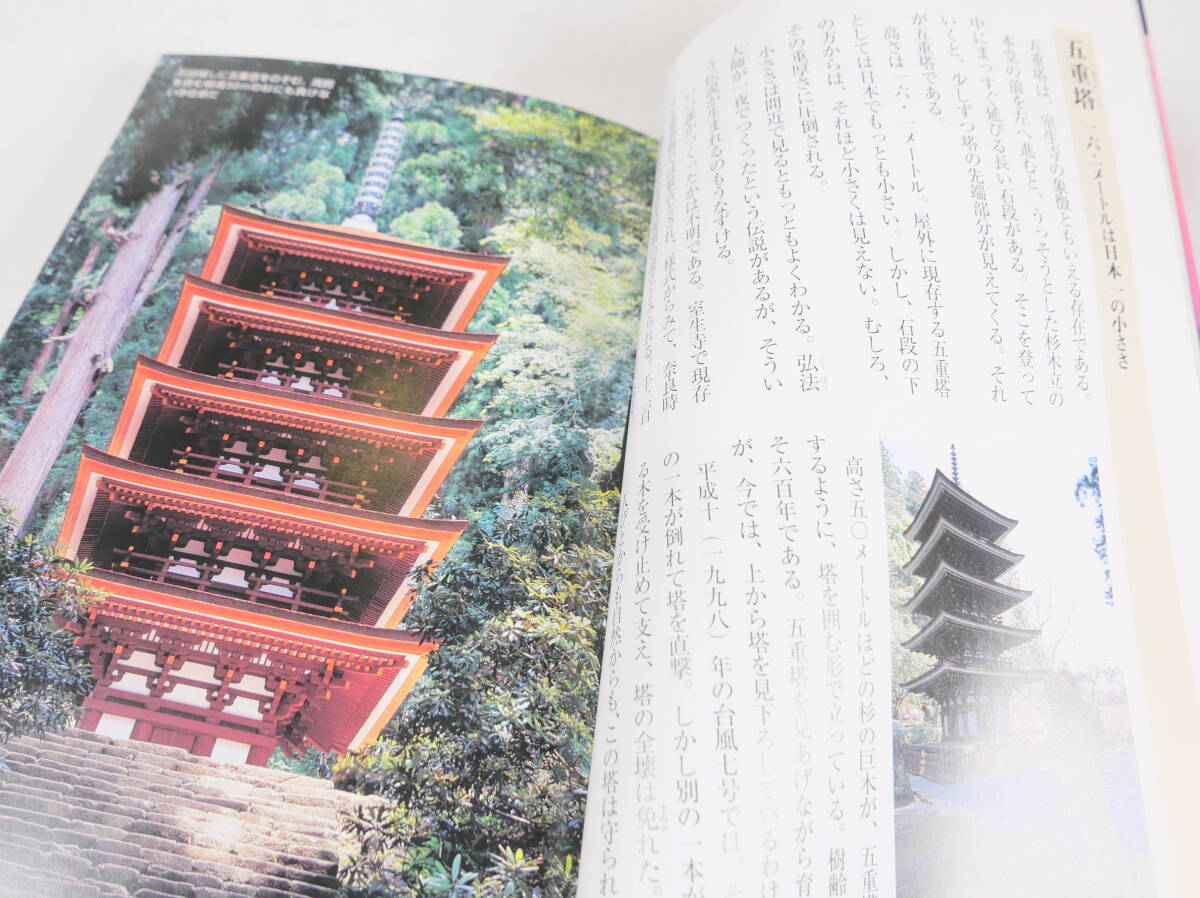 五重塔 一六・一メートルは日本一の小ささ
五重塔は、室生寺の象徴ともいえる存在である。
本堂の前を左へ進むと、うっそうとした杉木立の
中にまっすぐ延びる長い石段がある。そこを登って
いくと、少しずつ塔の先端部分が見えてくる。それ
が五重塔である。
高さは一六・一メートル。屋外に現存する五重塔
としては日本でもっとも小さい。しかし、石段の下
の方からは、それほど小さくは見えない。むしろ、
その重厚さに圧倒される。
小ささは間近で見るともっともよくわかる。弘法
大師が一夜でつくったという伝説があるが、そうい
う伝説が生まれるのもうなずける。
いつ誰がつくったかは不明である。室生寺で現存
様式からみて、奈良時
高さ五〇メートルほどの杉の巨木が、五重塔
するように、塔を囲む形で立っている。樹齢
そ六百年である。五重塔を見あげながら育
が、今では、上から塔を見下ろしているわけ
平成十(一九九八)年の台風七号では、そ
の一本が倒れて塔を直撃。しかし別の一本が
る木を受け止めて支え、塔の全壊は免れた。
からも自然からも、この塔は守られ